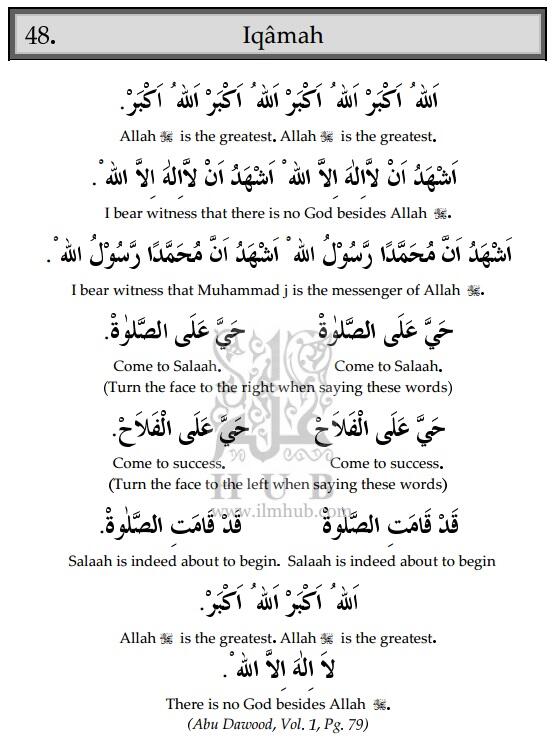 48. Iqâmah
اَللهُ اَكْبَرْ اَللهُ اَكْبَرْ اَللهُ اَكْبَرْ اَللهُ اَكْبَرْ.
Allah ﷻ is the greatest. Allah ﷻ is the greatest.
اَشْهَدُ اَنْ لَّآاِلٰهَ اِلَّا اللهْ اَشْهَدُ اَنْ لَّآاِلٰهَ اِلَّا اللهْ.
I bear witness that there is no God besides Allah ﷻ.
اَشْهَدُ اَنَّ مُحَمَّدًا رَّسُوْلُ اللهْ اَشْهَدُ اَنَّ مُحَمَّدًا رَّسُوْلُ اللهْ.
I bear witness that Muhammad j is the messenger of Allah ﷻ.
حَيَّ عَلَى الصَّلٰوةْ حَيَّ عَلَى الصَّلٰوةْ.
Come to Salaah. Come to Salaah.
(Turn the face to the right when saying these words)
حَيَّ عَلَى الْفَلَاحْ حَيَّ عَلَى الْفَلَاحْ.
Come to success. Come to success.
HUB
(Turn the face to the left when saying these words)
www.ilmhub.com
قَدْ قَامَتِ الصَّلٰوةْ قَدْ قَامَتِ الصَّلٰوةْ.
Salaah is indeed about to begin. Salaah is indeed about to begin
اَللهُ اَكْبَرْ اَللهُ اَكْبَرْ.
Allah ﷻ is the greatest. Allah ﷻ is the greatest.
لَا اِلٰهَ اِلَّا اللهْ.
There is no God besides Allah ﷻ.
(Abu Dawood, Vol. 1, Pg. 79)